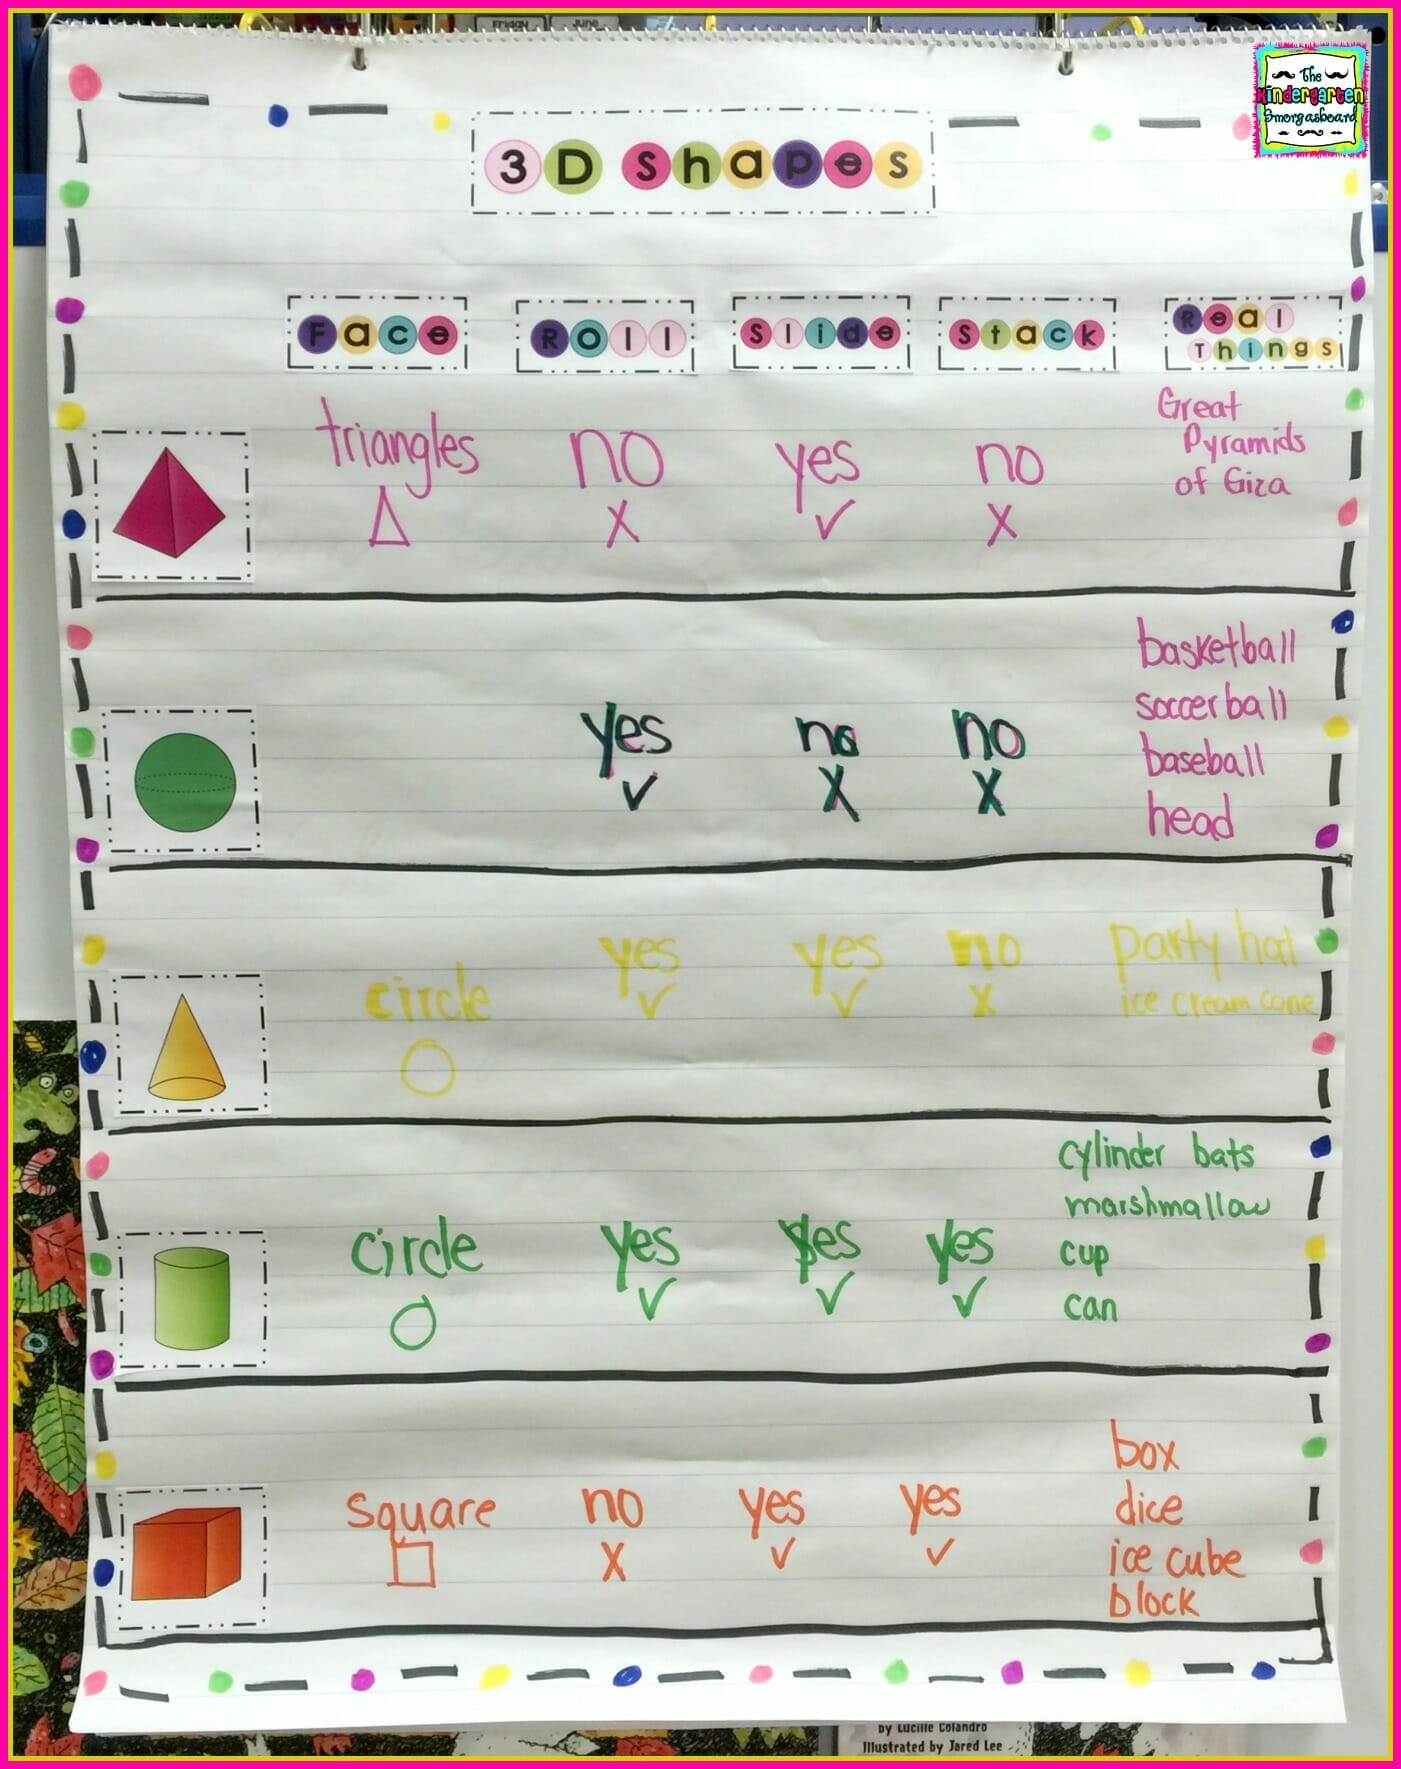 Friday June
The
Kindergarten
Smorgasboard
3D Shapes
Face Roll Slide Stack Real
Things
triangles no yes no Great
Pyramids
of Giza
X ✓ X
basketball
soccerball
yes no no baseball
✓ X X head
circle yes yes no party hat
✓ ✓ X ice cream cone
cylinder bats
marshmallow
circle yes yes yes cup
✓ ✓ ✓ can
box
square no yes yes dice
X ✓ ✓ ice cube
block
by Lucille Colandro
Illustrated by Jared Lee